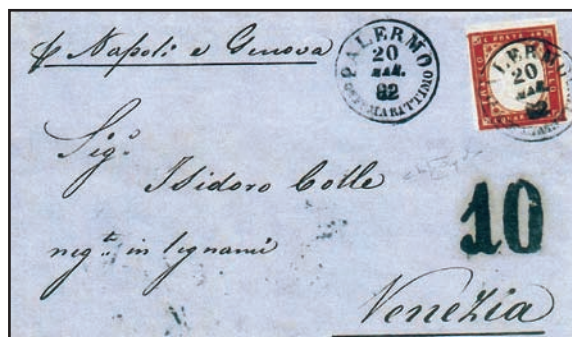 p Napoli e Genova
PALERMO
20
MAR.
62
MARITTIMO
LERMO
20
MAR.
62
Sigr
Isidoro Colle
negte in legnami
10
Venezia